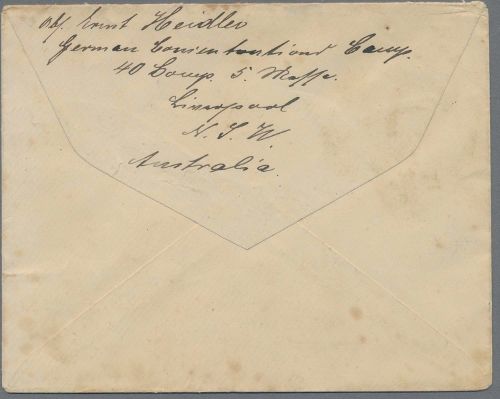 Abs. Ernst Heidler
German Concentrations Camp.
40 Comp. 5. Messe.
Liverpool
N. S. W.
Australia.